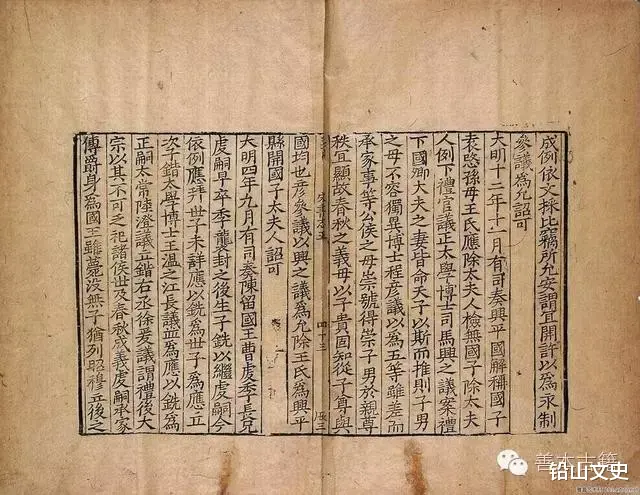 成例依文採比竊所允安謂宜開許以為永制
參議為允詔可
大明十二年十一月有司奏興平國解稱國子
袁愍孫母王氏應除太夫人檢無國子除太夫
人例下禮官議正太學博士司馬興之議案禮
下國卿大夫之妻皆命天子以斯而推則子男
之母不容獨異博士程彦議以為五等雖差而
承家事等公侯之母崇號得崇子男於親尊
秩宜顯故春秋之義母以子貴固知從子尊與
國均也彦參議以興之議為允除王氏為興平
縣開國子太夫人詔可
四十三
大明四年九月有司奏陳留國王曹虔季長兄
虔嗣早卒季襲封之後生子銑以繼虔嗣今
依例應拜世子未詳應以銑為世子為應立
次子鍇太學博士王温之江長議並為應以銑為
正嗣太常陸澄議立鍇右丞徐爰議謂禮後大
宗以其不可乏祀諸侯世及春秋成義虔嗣承家
傳爵身為國王雖薨没無子猶列昭穆立後之
善本古籍
铅山文史